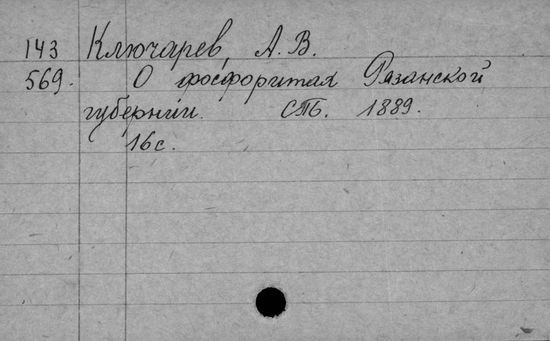 143 Ключарев, А. В.
569. О фосфоритах Рязанской
губернии. СПБ. 1889.
16 с.